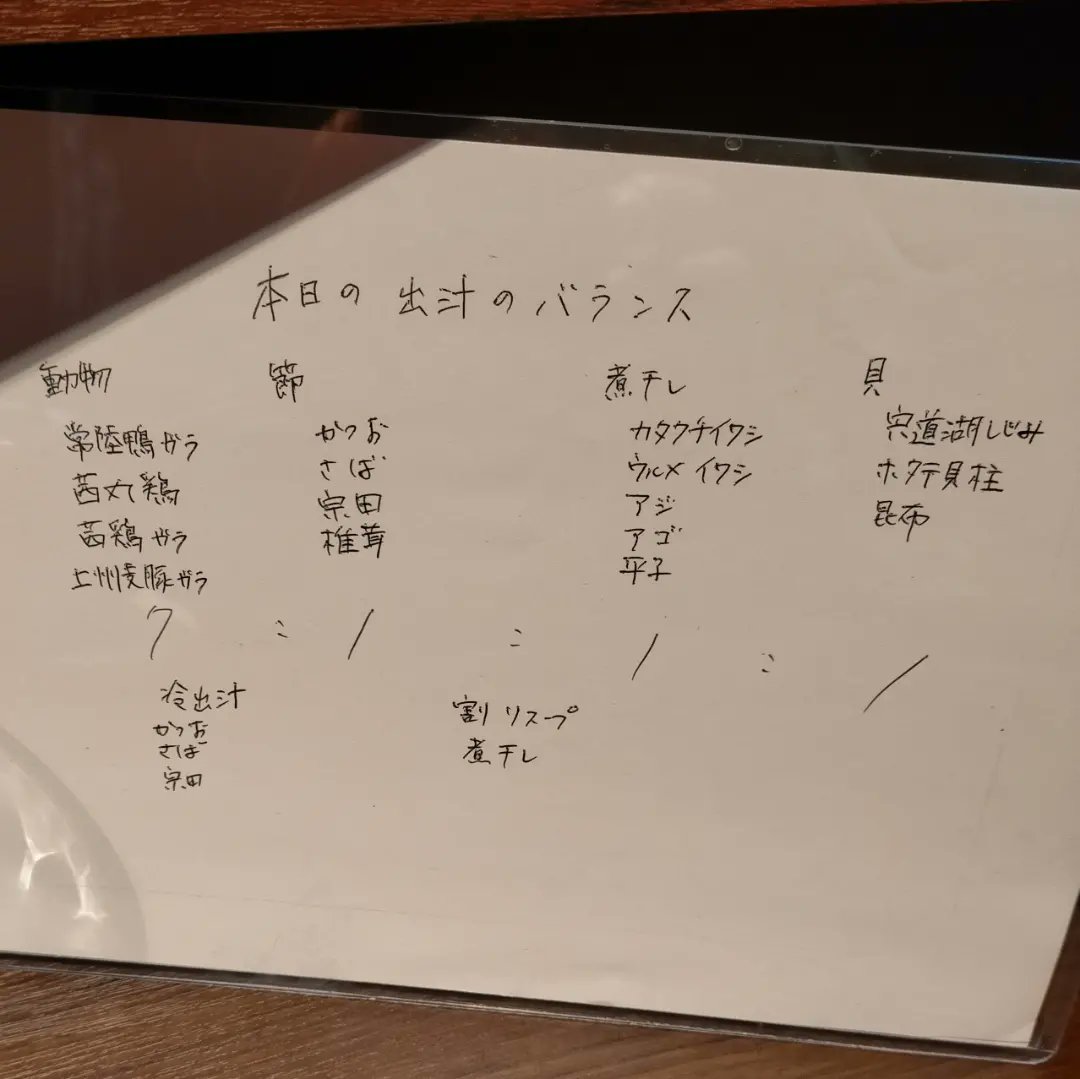 本日の出汁のバランス
動物
常陸鴨ガラ
茜丸鶏
茜鶏ガラ
上州麦豚ガラ
節
かつお
さば
宗田
椎茸
煮干し
カタクチイワシ
ウルメイワシ
アジ
アゴ
平子
貝
宍道湖しじみ
ホタテ貝柱
昆布
7 : 1 : 1 : 1
冷出汁
かつお
さば
宗田
割りスープ
煮干し